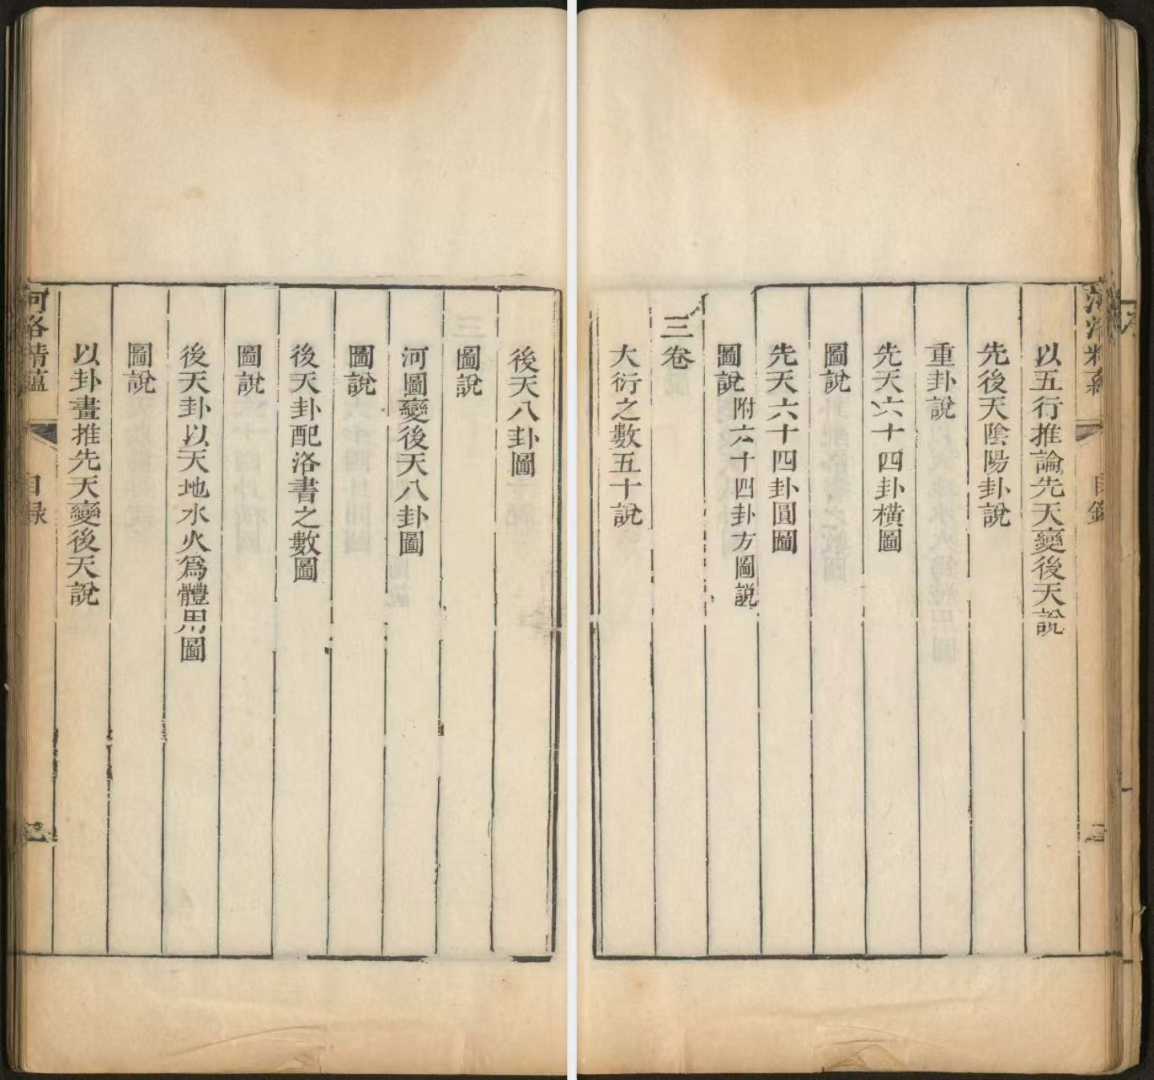 河洛精蘊
目錄
以五行推論先天變後天說
先後天陰陽卦說
重卦說
先天六十四卦橫圖
圖說
先天六十四卦圓圖
圖說附六十四卦方圖說
三卷
大衍之數五十說
後天八卦圖
圖說
河圖變後天八卦圖
圖說
後天卦配洛書之數圖
圖說
後天卦以天地水火爲體用圖
圖說
以卦畫推先天變後天說
河洛精蘊
目錄